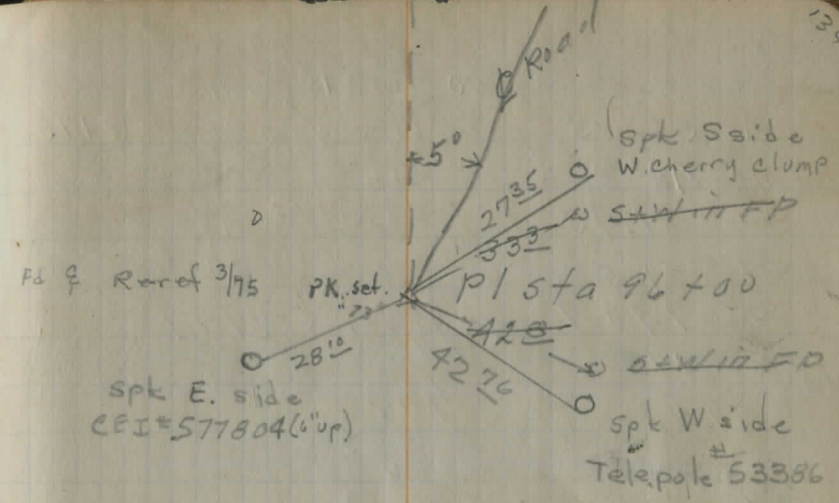 Road
5°
Spk S side
W. cherry clump
27 35
S+W in FP
33 3
Fd & Reref 3/95
PK set.
PI sta 96+00
42 8
28 10
42 76
S+W in FP
Spk E. side
CEI # 577804 (6" up)
Spk W side
Tele. pole # 53386